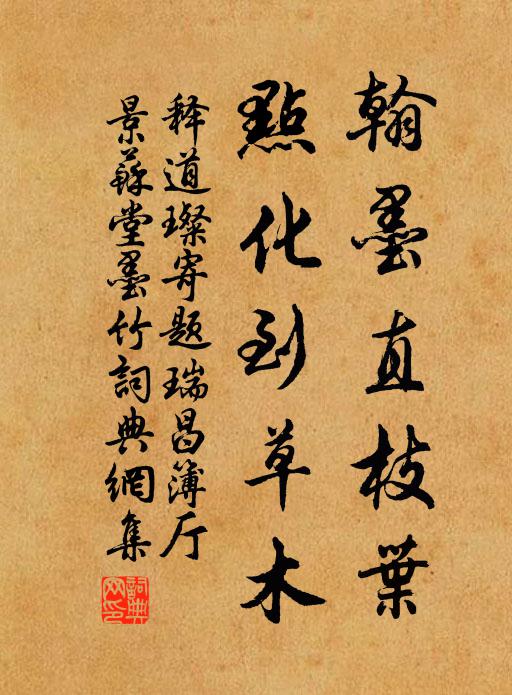 翰墨直枝葉
點化到草木
释道璨寄题瑞昌簿厅
景蘇堂墨竹詞典網集
詞典網印